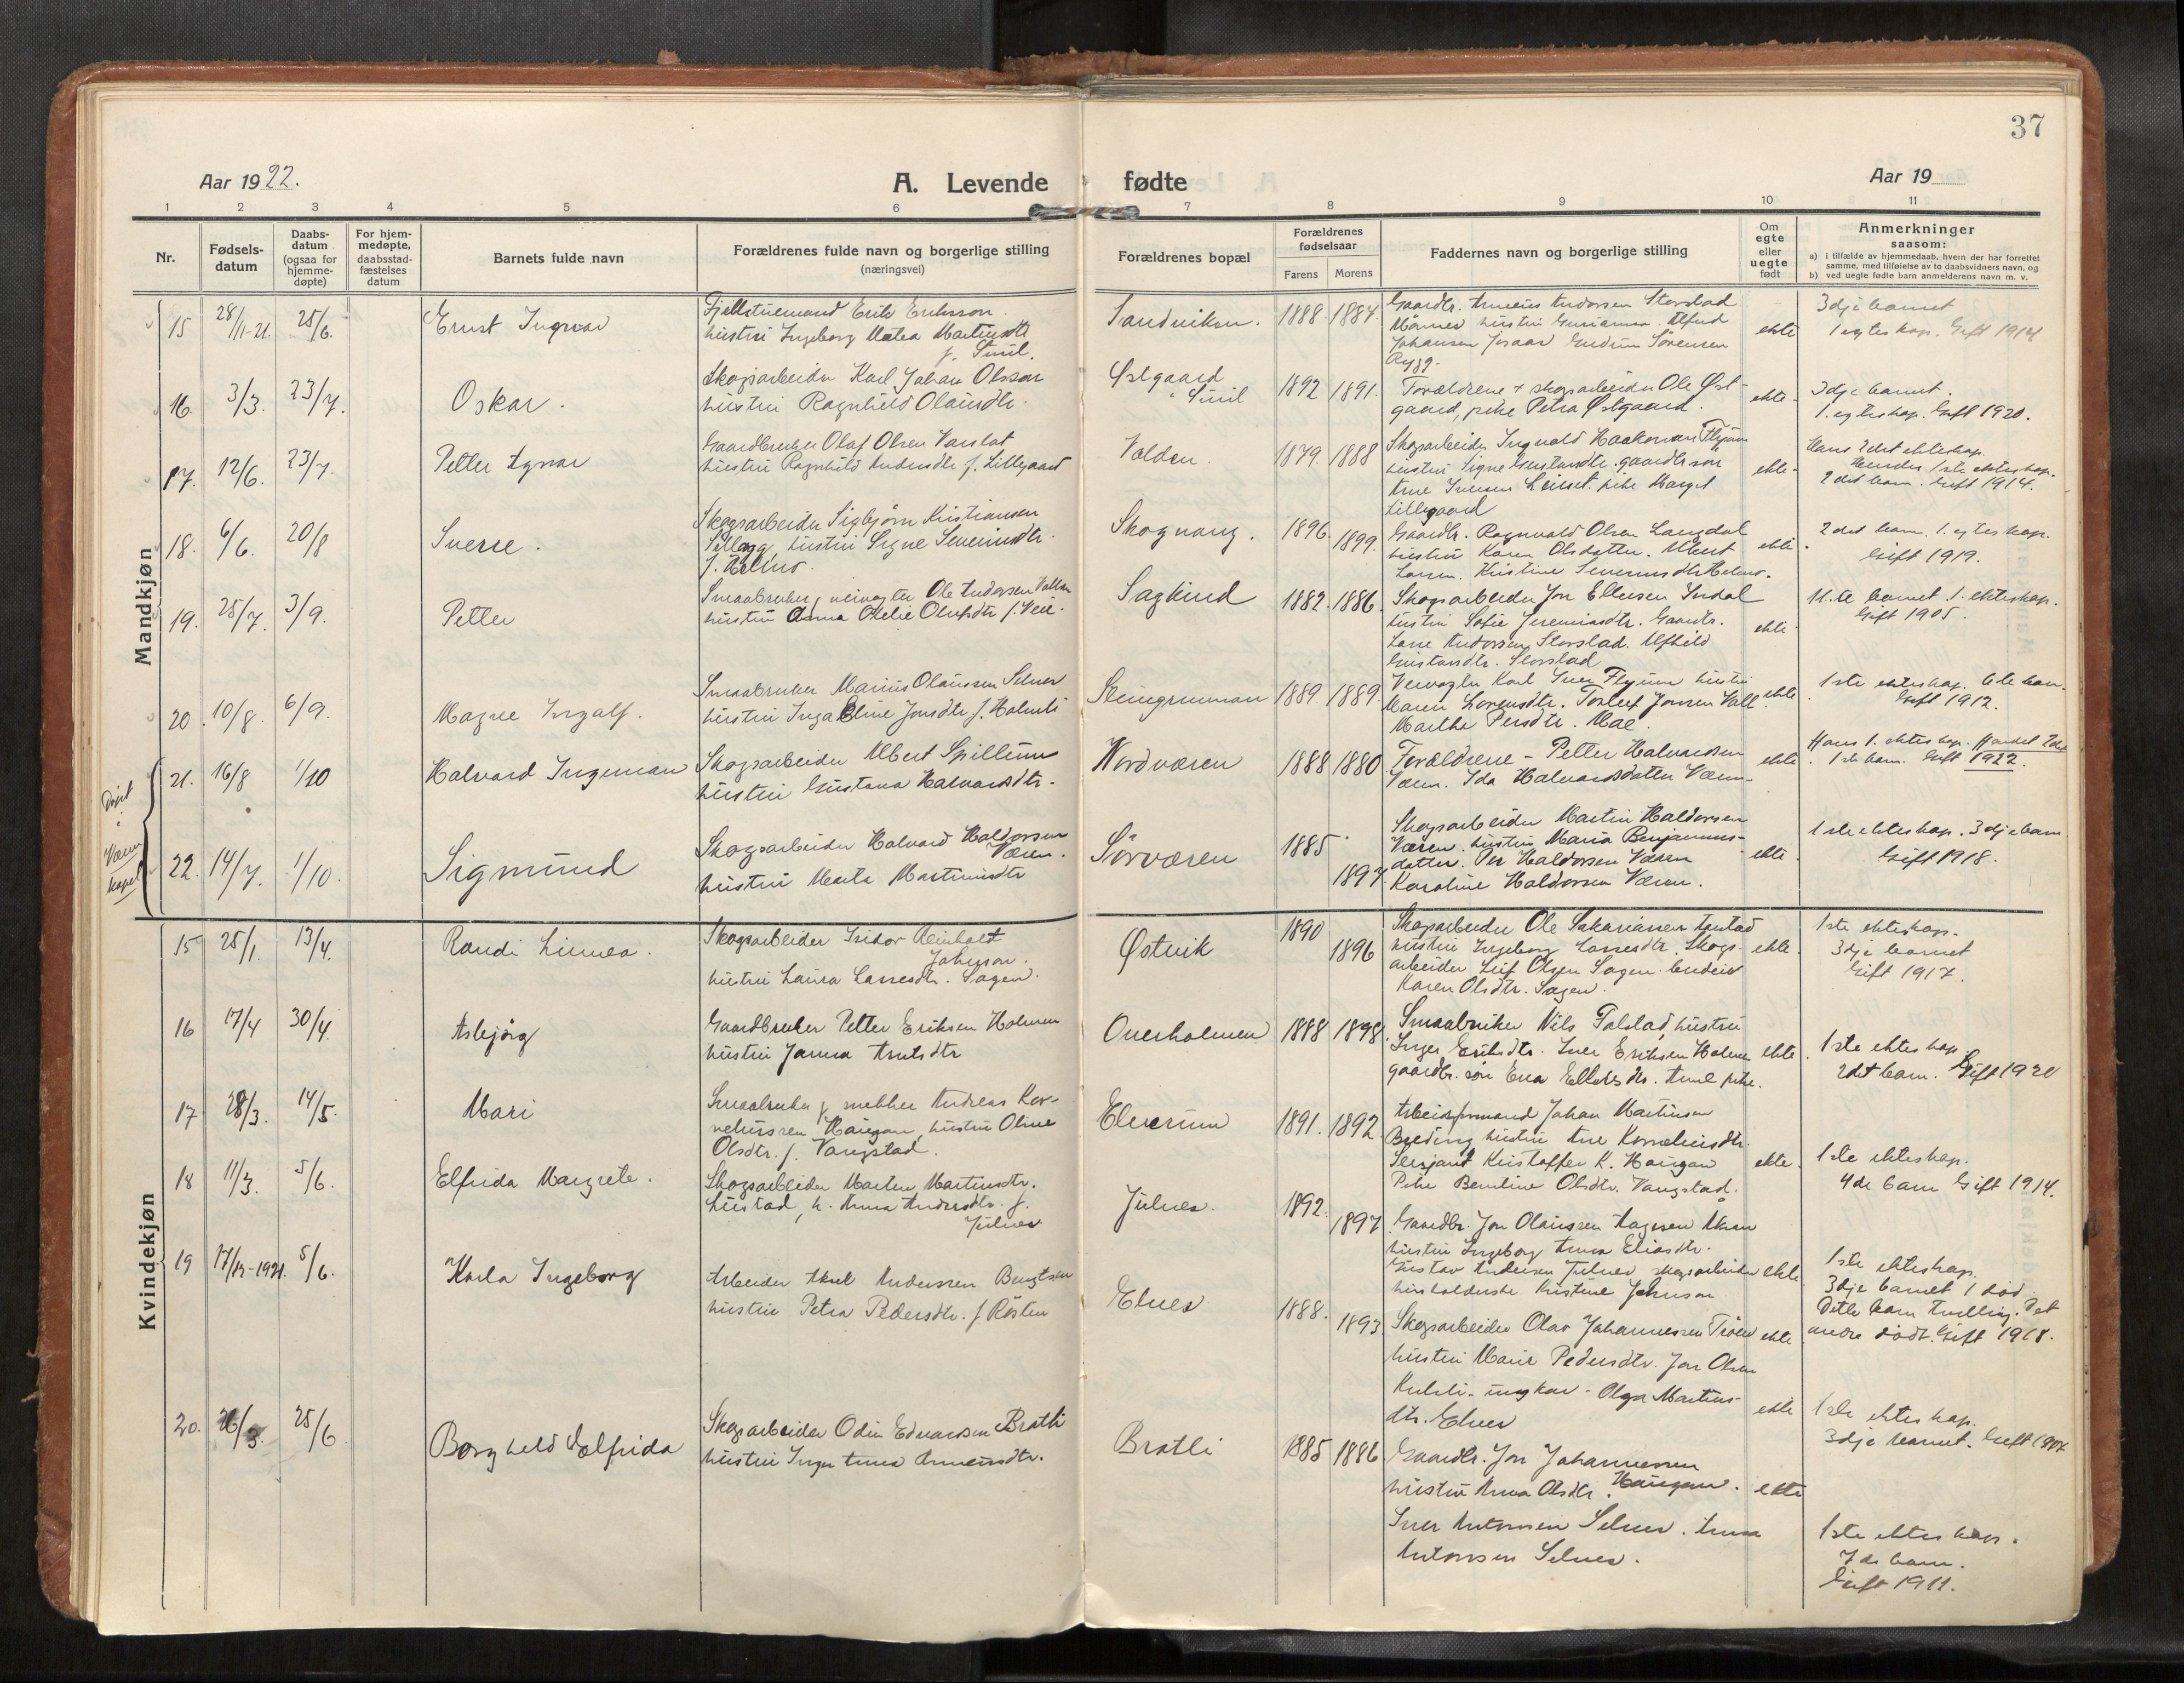 37
Aar 1922.
A. Levende fødte
Aar 19
1 2 3 4 5 6 7 8 9 10 11
Nr.
Fødsels-
datum
Daabs-
datum
(ogsaa for
hjemme-
døpte)
For hjem-
medøpte,
daabsstad-
fæstelses
datum
Barnets fulde navn
Forældrenes fulde navn og borgerlige stilling
(næringsvei)
Forældrenes bopæl
Forældrenes
fødselsaar
Farens Morens
Faddernes navn og borgerlige stilling
Om
egte
eller
uegte
født
Anmerkninger
saasom:
a) i tilfælde av hjemmedaab, hvem der har forrettet
samme, med tilføielse av to daabsvidners navn, og
b) ved uegte fødte barn anmelderens navn m. v.
Mandkjøn
15 28/11-21. 25/6. Ernst Ingvar
Fjellstuemand Erik Eriksson.
hustru Ingeborg Matea Martinsdtr
Sandviken. 1888. 1884.
Gaardbr. Andersen Storstad
hustru
Johansen Gudrun Sørensen
Rygg.
ekte
3dje barnet
1 egteskap. Gift 1914
16. 3/3. 23/7. Oskar.
Skogsarbeider Karl Johan Olsson
hustru Ragnhild Olausdtr.
Østgaard
1892 1891.
Forældrene + skogsarbeider Ole Øst-
gaard, pike Petra Østgaard.
ekte
3dje barnet.
1. egteskap. Gift 1920.
17. 12/6. 23/7. Petter Agnar
Gaardbruker Olaf Olsen
hustru Ragnhild Andersdtr f. Lillegaard
Volden. 1879. 1888
Skogsarbeider Ingvald Haakonsen Flyum
hustru Signe Gustavsdtr. gaardbr.søn
Arne Iversen pike Margit
Lillegaard
ekte
Hans 2det ekteskap.
Hendes 1ste ekteskap.
2det barn. Gift 1914.
18. 6/6. 20/8 Sverre.
Skogsarbeider Sigbjørn Kristiansen
hustru Signe Severinsdtr.
Skognang. 1896. 1899.
Gaardbr. Ragnvald Olsen Langdal
hustru Karen Olsdatter. Albert
Larsen. Kristine Severinsdtr
ekte
2det barn. 1. egteskap.
Gift 1919.
19. 25/7. 3/9. Petter
Smaabruker, veivogter Ole Andersen
hustru Anna Otelie Olufsdtr f. Veie.
Saglund 1882. 1886.
Skogsarbeider Jon Ellensen
hustru Sofie Jeremiasdtr. Gaardbr.
Lars Andersen Storstad. Alfhild
Gustavsdtr. Storstad
ekte
11.te barnet. 1. ekteskap.
Gift 1905.
20. 10/8. 6/9. Magne Ingolf.
Smaabruker Marius Olaussen Selnes
hustru Inga Eline Jonsdtr f. Holmli
1889. 1889.
Veivogter Karl Iver Flyum hustru
Maren Lorensdtr. Torleif Jonsen
Marthe Persdtr.
ekte
1ste ekteskap. 6te barn.
Gift 1912.
Døpt
i
Væren
kapel
21. 16/8 1/10 Halvard Ingeman
Skogsarbeider Albert Spillum
hustru Gustava Halvardsdtr.
Nordværen 1888 1880
Forældrene - Petter Halvardsen
Væren. Ida Halvardsdatter Væren
ekte
Hans 1. ekteskap.
1ste barn. Gift 1922.
22. 14/7. 1/10. Sigmund
Skogsarbeider Halvard Haldorsen
Væren.
hustru Marta Martinusdtr
Sørværen 1885 1897
Skogsarbeider Martin Haldorsen
Væren. hustru Maria Benjamins-
datter. Per Haldorsen Væren
Karoline Haldorsen Væren.
ekte
1ste ekteskap. 3dje barn
Gift 1918.
Kvindekjøn
15 25/1. 13/4. Randi Linnea.
Skogsarbeider Isidor Reinholdt
Johnson.
hustru Laura Larsesdtr. Sagen.
Østvik 1890 1896
Skogsarbeider Ole Sakariassen
hustru Ingeborg Larsesdtr. Skogs-
arbeider Leif Olsen Sagen.
Karen Olsdtr. Sagen.
ekte
1ste ekteskap.
3dje barnet
Gift 1917.
16 17/4 30/4. Asbjørg
Gaardbruker Petter Eriksen Holmen
hustru Janna Arntsdtr
Overholmen 1888 1898
Smaabruker Nils Falstad, hustru
Inger Eriksdtr. Iver Eriksen Holmen
gaardbr. søn pike.
ekte
1ste ekteskap
2det barn. Gift 1920
17 28/3. 14/5. Mari
Smaabruker Andreas Kor-
neliussen Haugan, hustru Oline
Olsdtr. f. Vangstad.
Elverum 1891. 1892
Arbeidsformand Johan Martinsen
Breding hustru Ane Korneliusdtr.
Sersjant Kristoffer K. Haugan
Pike Berntine Olsdtr. Vangstad.
ekte
1ste ekteskap.
4de barn Gift 1914.
18 11/3. 5/6. Elfrida Margrete.
Skogsarbeider Morten Martinsdtr.
h. Anna Andersdtr. f.
Julnes
Julnes. 1892. 1897
Gaardbr. Jon Olaussen
hustru Ingeborg Anna Eliasdtr.
Gustav Andersen Julnes skogsarbeider
husholderske Kristine Johnson
ekte
1ste ekteskap.
3dje barnet 1 død
19 17/12-1921. 5/6. Karla Ingeborg
Arbeider Aksel Anderssen Bengtsen
hustru Petra Pedersdtr. f. Røsten
Elnes 1888. 1893
Skogsarbeider Olav Johannessen
hustru Marie Pedersdtr. Jon Olsen
ungkar - Olga Martins-
dtr. Elnes
ekte
Dette barn tvilling. Det
andre dødt. Gift 1918.
20. 26/3. 25/6 Borghild Solfrida
Skogsarbeider Odin Edvardsen Bratli
hustru Inga Anna
Bratli 1885 1886
Gaardbr. Jon Johannessen
hustru Anna Olsdtr. Haugan.
Iver Antonsen Selnes. Anna
Antonsen Selnes.
ekte
ekte
1ste ekteskap.
3dje barnet.
1ste ekteskap.
7de barn.
Gift 1911.